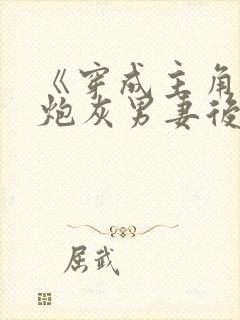 《穿成主角
炮灰男妻後
屈武